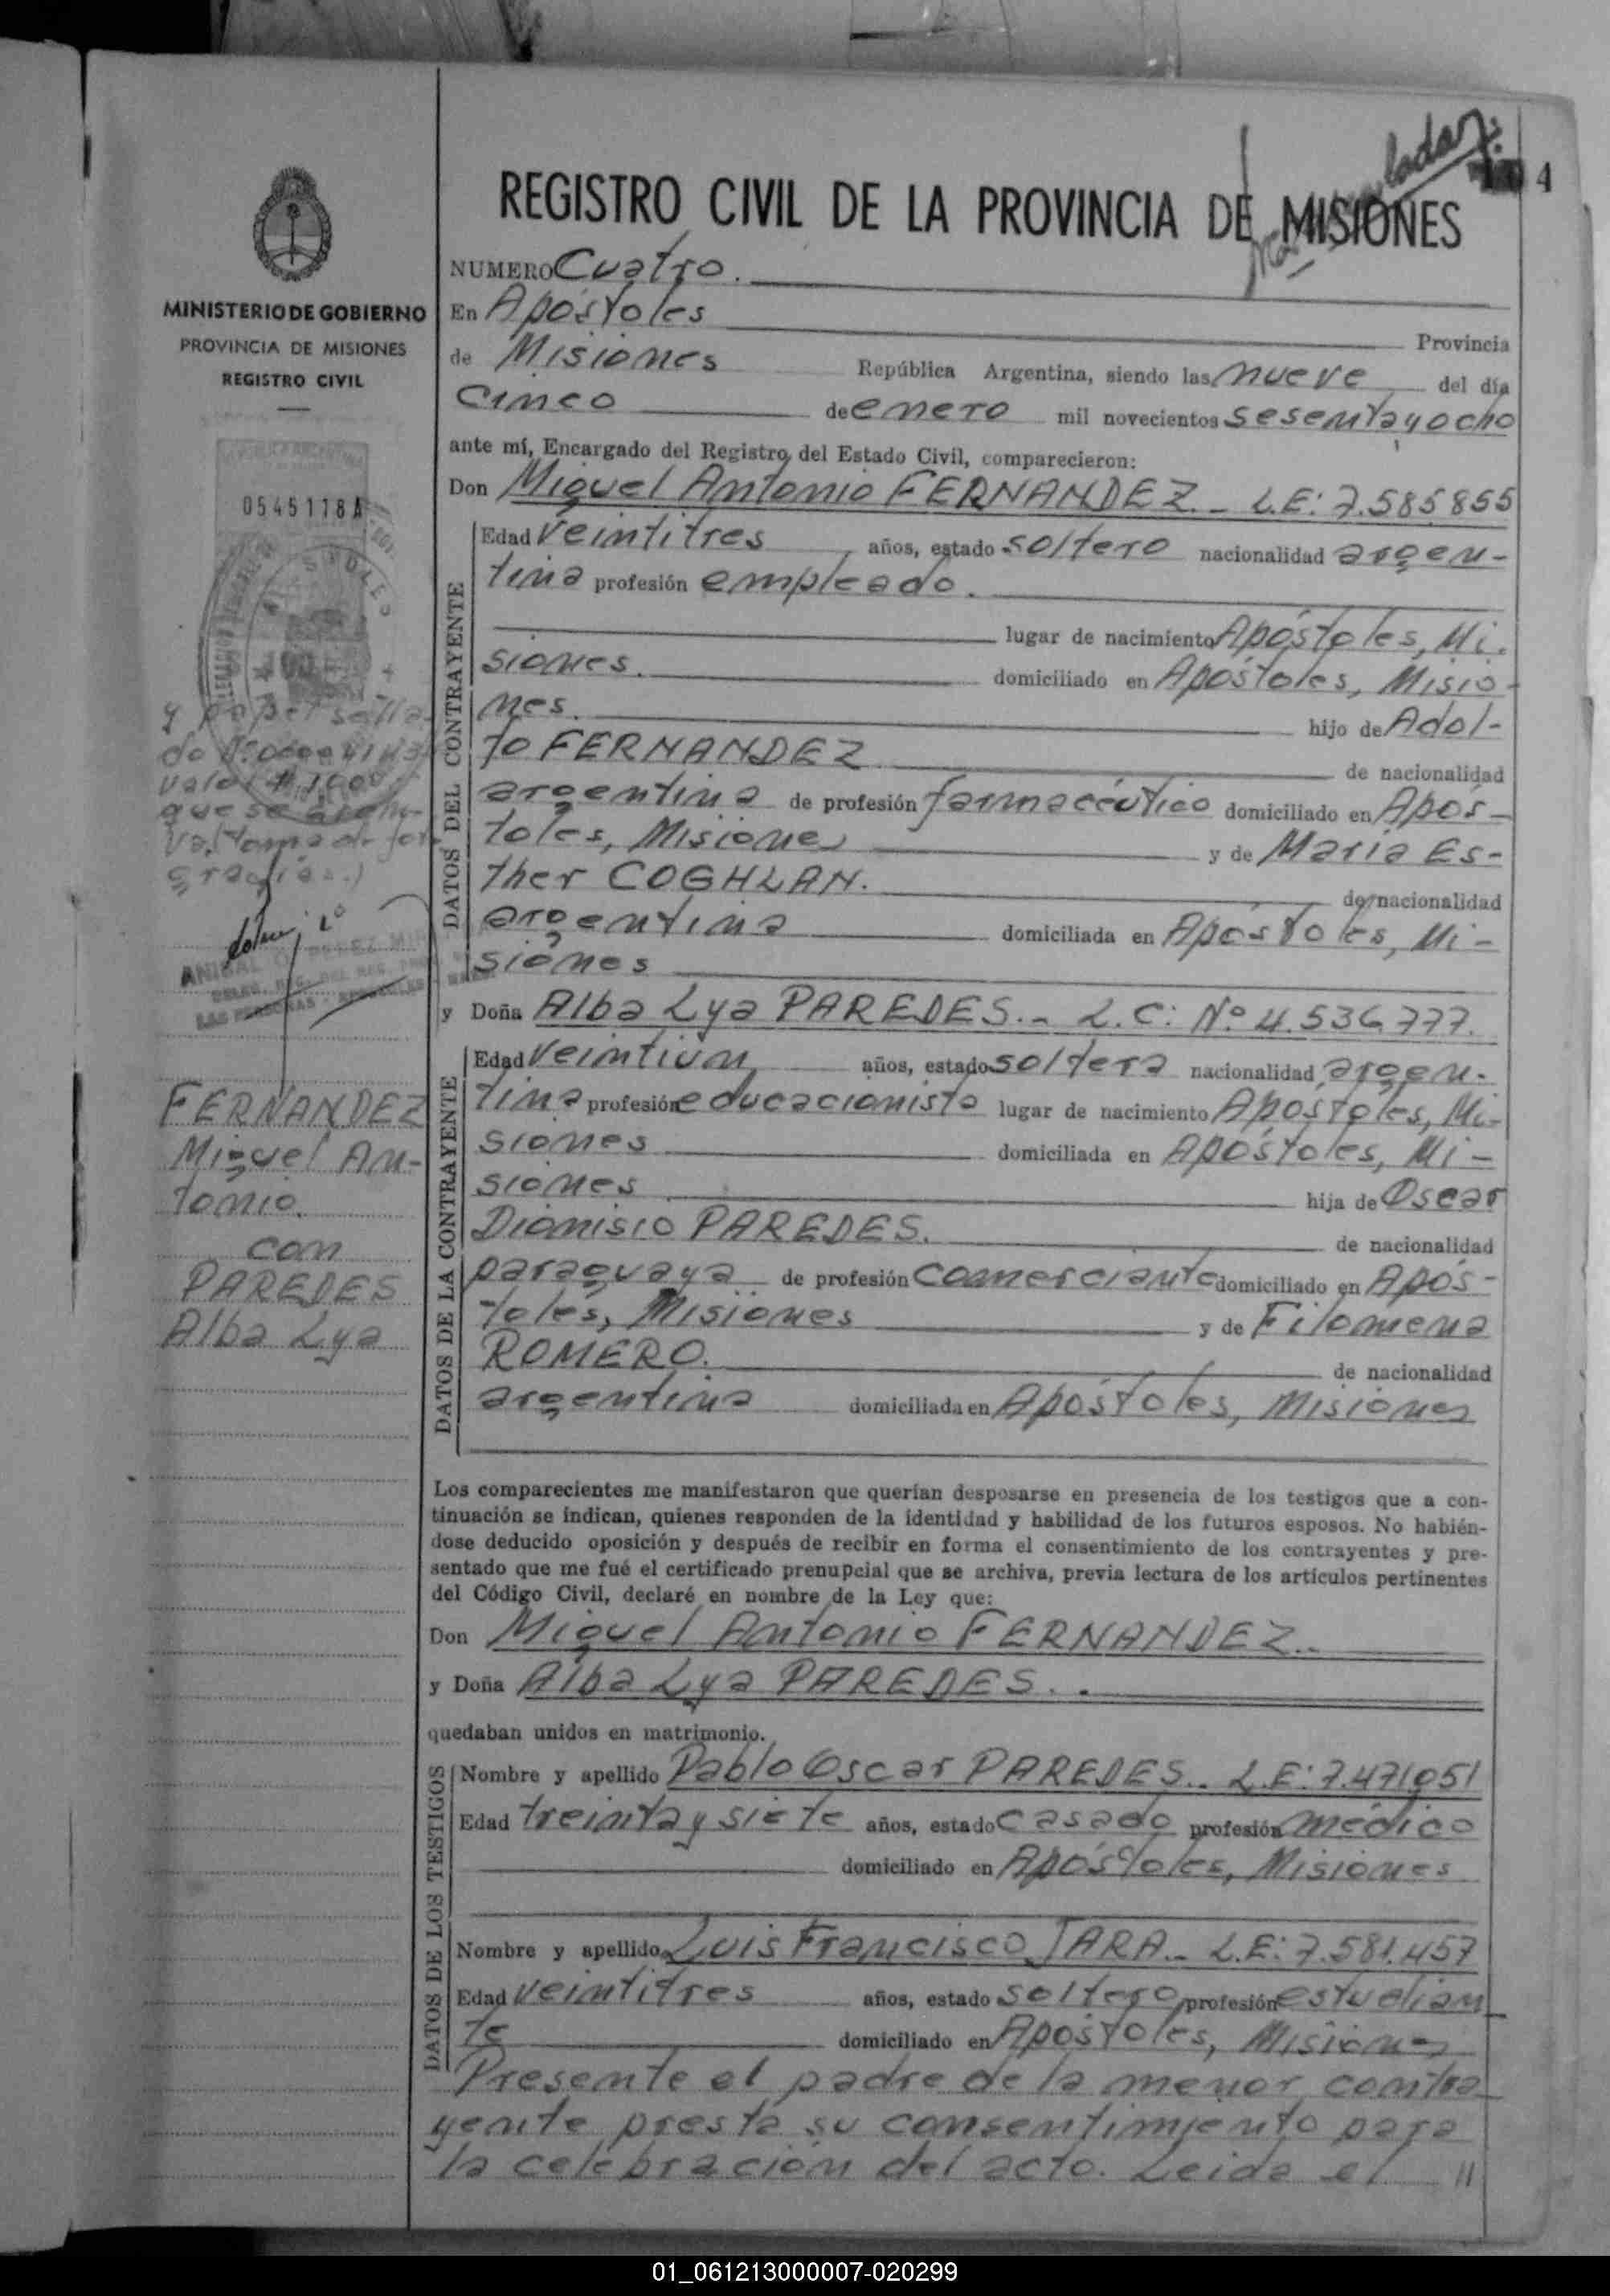 4
REGISTRO CIVIL DE LA PROVINCIA DE MISIONES
MINISTERIO DE GOBIERNO
PROVINCIA DE MISIONES
REGISTRO CIVIL
0545118A
y papel sella-
do
valor $ 1000
que se
FERNANDEZ
Miguel An-
tonio.
con
PAREDES
Alba Lya
NUMERO Cuatro.
En Apóstoles Provincia
de Misiones República Argentina, siendo las nueve del día
Cinco de enero mil novecientos sesentayocho
ante mí, Encargado del Registro del Estado Civil, comparecieron:
Don Miguel Antonio FERNANDEZ.- L.E: 7.585855
DATOS DEL CONTRAYENTE
Edad veintitres años, estado soltero nacionalidad argen-
tina profesión empleado.
lugar de nacimiento Apóstoles, Mi.
siones. domiciliado en Apóstoles, Misio-
nes. hijo de Adol-
fo FERNANDEZ de nacionalidad
argentina de profesión farmacéutico domiciliado en Após-
toles, Misiones y de María Es-
ther COGHLAN. de nacionalidad
argentina domiciliada en Apóstoles, Mi-
siones
y Doña Alba Lya PAREDES.- L.C: Nº 4.536.777.
DATOS DE LA CONTRAYENTE
Edad veintiun años, estado soltera nacionalidad argen-
tina profesión educacionista lugar de nacimiento Apóstoles, Mi-
siones domiciliada en Apóstoles, Mi-
siones hija de Oscar
Dionisio PAREDES. de nacionalidad
paraguaya de profesión comerciante domiciliado en Após-
toles, Misiones y de Filomena
ROMERO. de nacionalidad
argentina domiciliada en Apóstoles, Misiones
Los comparecientes me manifestaron que querían desposarse en presencia de los testigos que a con-
tinuación se indican, quienes responden de la identidad y habilidad de los futuros esposos. No habién-
dose deducido oposición y después de recibir en forma el consentimiento de los contrayentes y pre-
sentado que me fué el certificado prenupcial que se archiva, previa lectura de los artículos pertinentes
del Código Civil, declaré en nombre de la Ley que:
Don Miguel Antonio FERNANDEZ..
y Doña Alba Lya PAREDES..
quedaban unidos en matrimonio.
DATOS DE LOS TESTIGOS
Nombre y apellido Pablo Oscar PAREDES.. L.E: 7.471051
Edad treinta y siete años, estado casado profesión médico
domiciliado en Apóstoles, Misiones
Nombre y apellido Luis Francisco JARA.- L.E: 7.581.457
Edad veintitres años, estado soltero profesión estudian
te domiciliado en Apóstoles, Misiones
Presente el padre de la menor contra
yente presta su consentimiento para
la celebración del acto. Leida el //
01_061213000007-020299